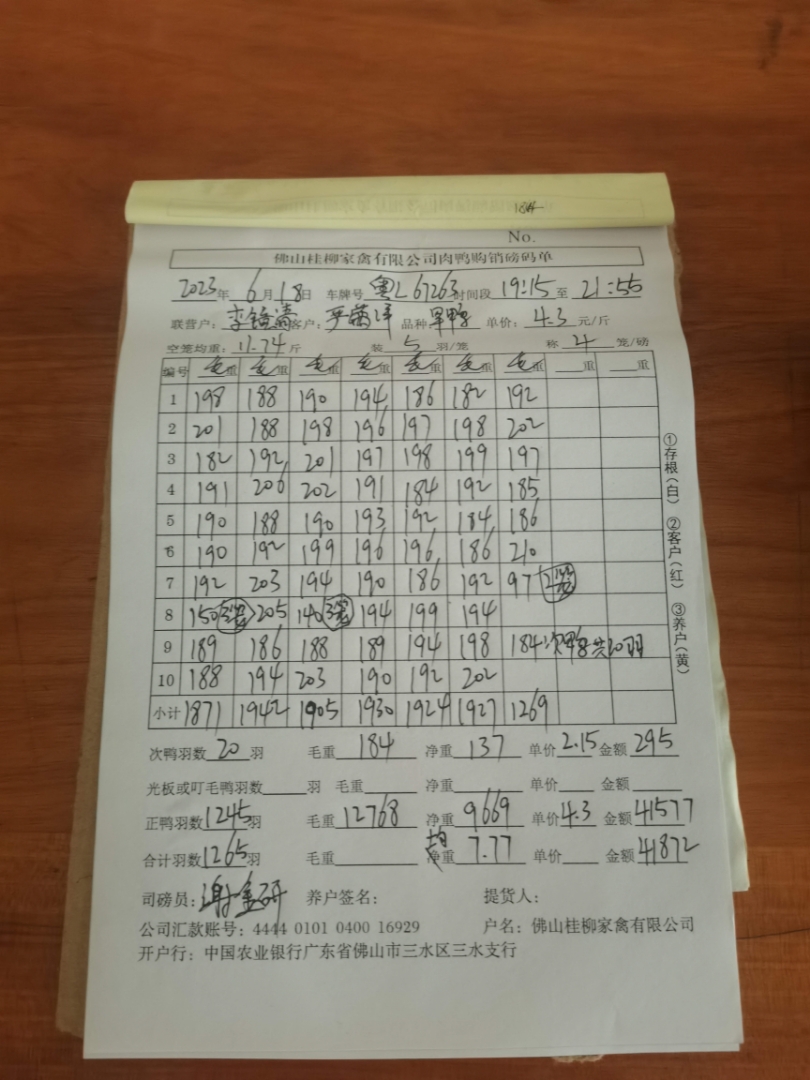 No.
佛山桂柳家禽有限公司肉鸭购销磅码单
2023年 6月18日 车牌号 粤L67263 时间段 19:15 至 21:55
联营户: 客户: 品种 单价: 4.3 元/斤
空笼均重: 11.74 斤 装 5 羽/笼 称 4 笼/磅
编号 毛重 毛重 毛重 毛重 毛重 毛重 毛重 重 重
1 198 188 190 194 186 182 192
2 201 188 198 196 197 198 202
3 182 192 201 197 198 199 197
4 191 206 202 191 184 192 185
5 190 188 190 193 192 184 186
6 190 192 199 196 196 186 210
7 192 203 194 190 186 192 97
8 150 205 140 194 199 194
9 189 186 188 189 194 198 184 次鸭共20羽
10 188 194 203 190 192 202
小计 1871 1942 1905 1930 1924 1927 1269
①存根(白) ②客户(红) ③养户(黄)
次鸭羽数 20 羽 毛重 184 净重 137 单价 2.15 金额 295
光板或叮毛鸭羽数 羽 毛重 净重 单价 金额
正鸭羽数 1245 羽 毛重 12768 净重 9669 单价 4.3 金额 41577
合计羽数 1265 羽 毛重 均重 7.77 单价 金额 41872
司磅员: 养户签名: 提货人:
公司汇款账号: 4444 0101 0400 16929 户名: 佛山桂柳家禽有限公司
开户行: 中国农业银行广东省佛山市三水区三水支行